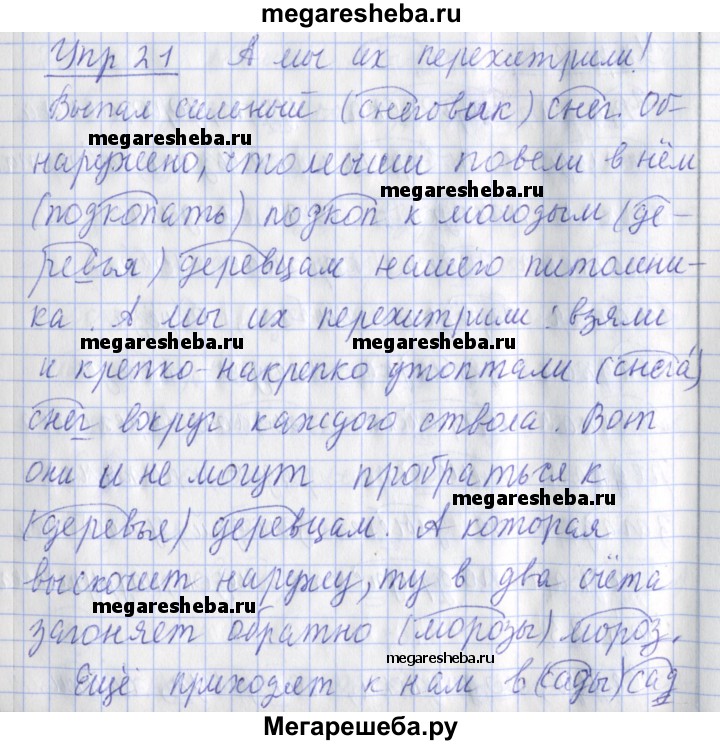 megaresheba.ru
Упр 21 А мы их перехитрили!
Выпал сильный (снеговик) снег. Об-
megaresheba.ru
наружено, что мыши повели в нём
megaresheba.ru
(подкопать) подкоп к молодым (де-
ревья) деревцам нашего питомни-
ка. А мы их перехитрили: взяли
megaresheba.ru megaresheba.ru
и крепко-накрепко утоптали (снега́)
снег вокруг каждого ствола. Вот
они и не могут пробраться к
megaresheba.ru
(деревья) деревцам. А которая
выскочит наружу, ту в два счёта
megaresheba.ru
загоняет обратно (морозы) мороз.
megaresheba.ru
Ещё приходят к нам в (сады) сад
Мегарешеба.ру